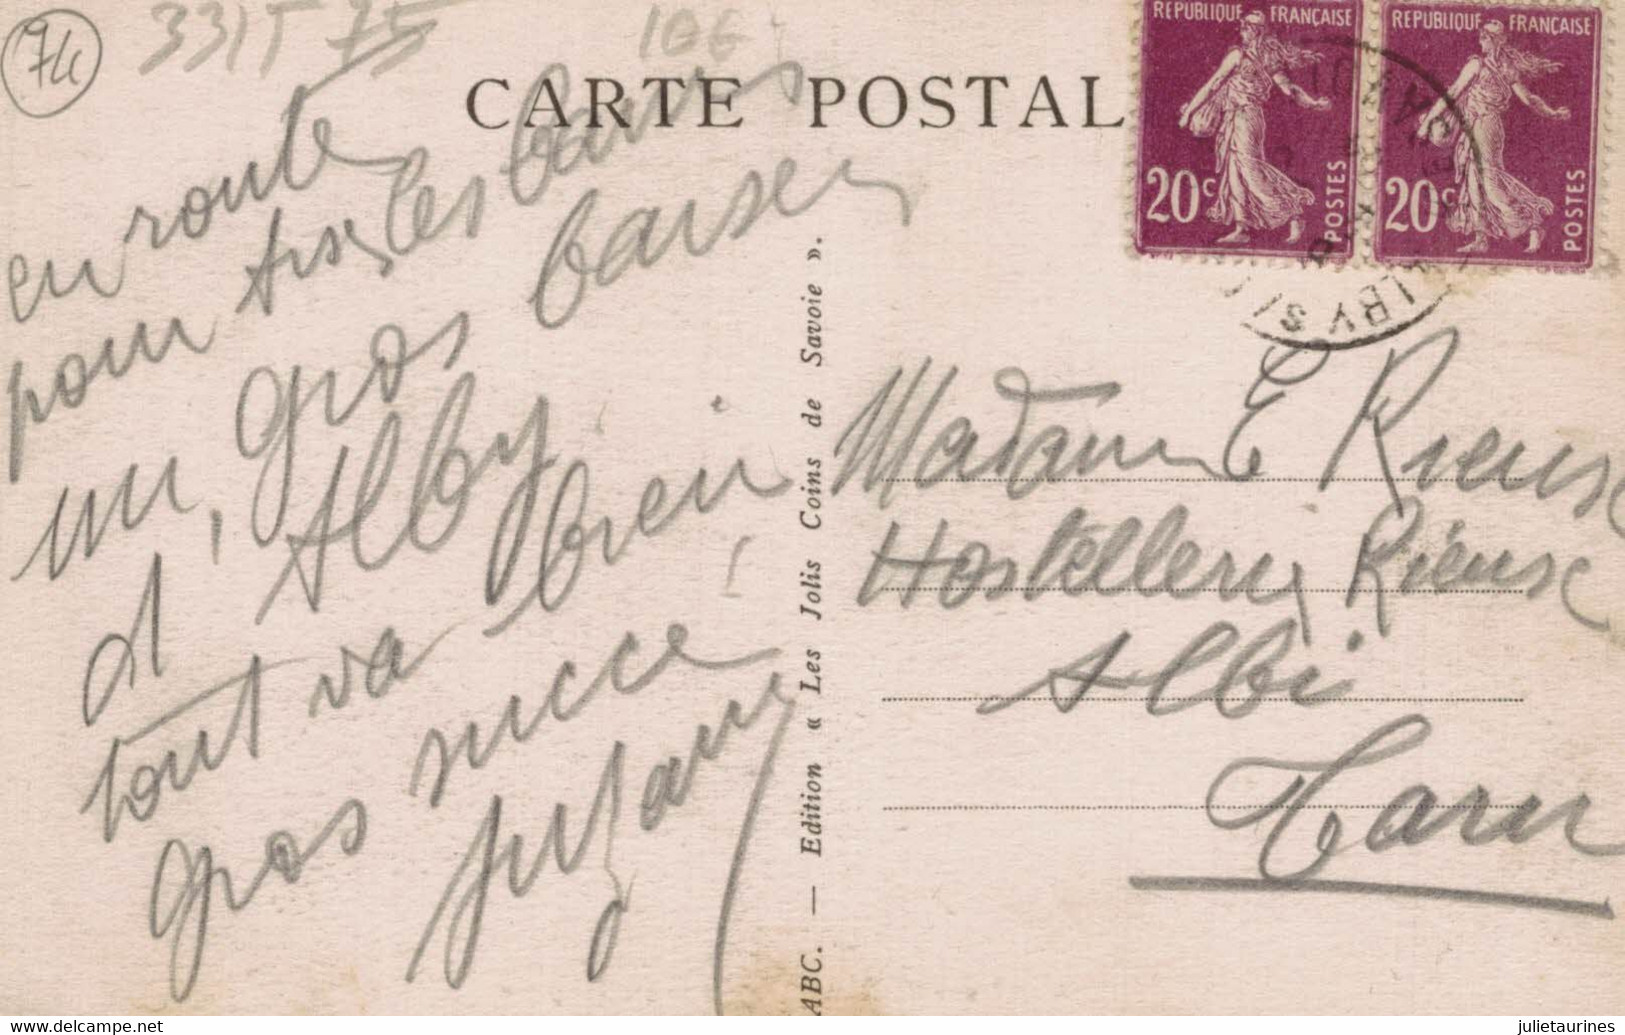 74
331T 75
10€
CARTE POSTALE
REPUBLIQUE FRANÇAISE
20c
POSTES
REPUBLIQUE FRANÇAISE
20c
POSTES
ALBY S
en route
pour Aix les bains
un gros baiser
d'Alby
tout va bien
gros
Suzanne
ABC. — Edition « Les Jolis Coins de Savoie ».
Madame E Rieuse
Hostellery Rieuse
Albi
Tarn
www.delcampe.net
julietaurines